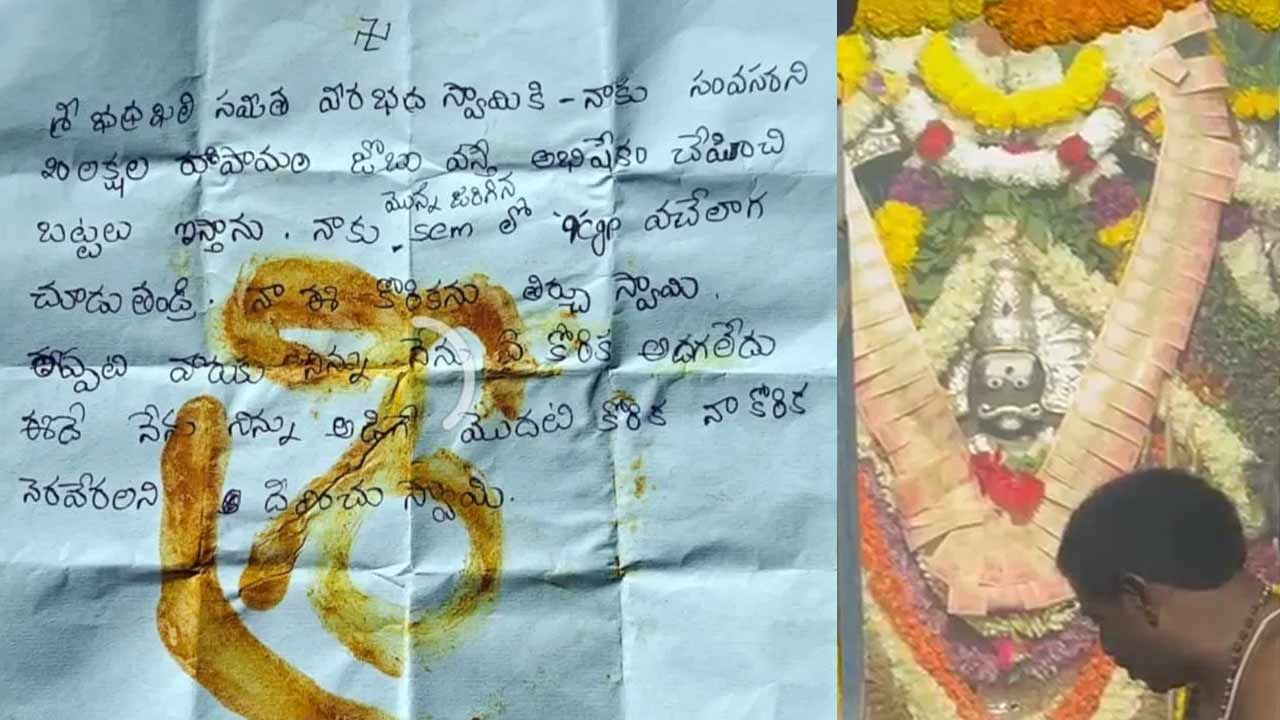 శ్రీ భద్రకాళి సమేత వీరభద్ర స్వామికి - నాకు సంవసరని
20 లక్షల రూపాయల జాబు వస్తే అభిషేకం చేపించి
బట్టలు ఇస్తాను. నాకు మొన్న జరిగిన sem లో వచేలాగ
చూడు తండ్రి. నా ఈ కోరికను తీర్చు స్వామి.
ఇప్పటి వారుకు నిన్ను నేను ఏ కోరిక అడగలేదు
ఈడే నేను నిన్ను అడిగే మొదటి కోరిక నా కోరిక
నెరవేరలని స్వామి.